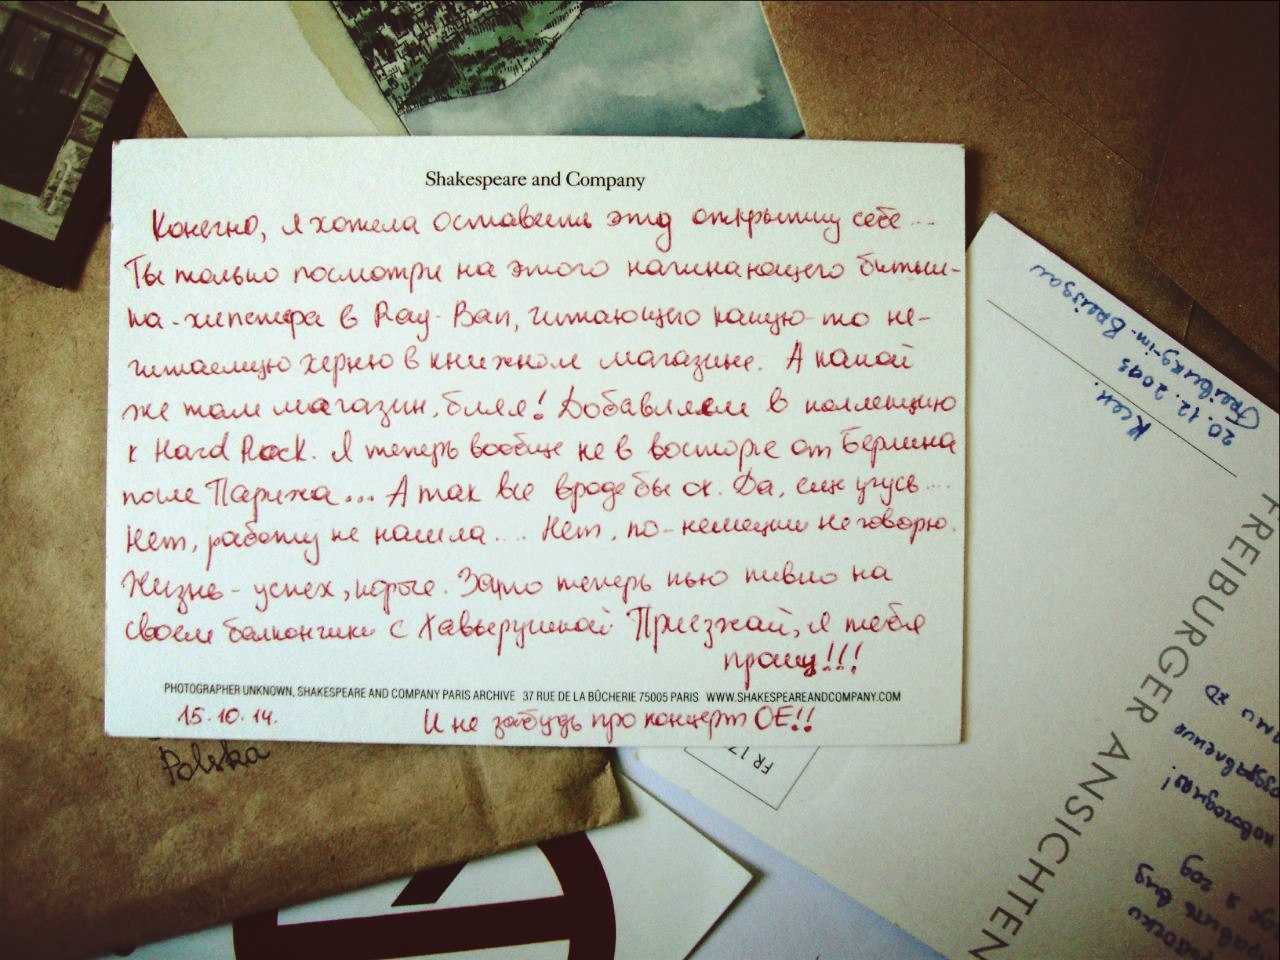 Shakespeare and Company
Конечно, я хотела оставить эту открытку себе...
Ты только посмотри на этого начинающего битни-
ка-хипстера в Ray-Ban, читающего какую-то не-
читаемую херню в книжном магазине. А какой
же там магазин, бля! Добавляем в коллекцию
к Hard Rock. Я теперь вообще не в восторге от Берлина
после Парижа... А так все вроде бы ок. Да, еще учусь....
Нет, работу не нашла.... Нет, по-немецки не говорю.
Жизнь - успех, короче. Зато теперь пью пивко на
своем балкончике с Хавьерушкой Приезжай, я тебя
прошу!!!
PHOTOGRAPHER UNKNOWN, SHAKESPEARE AND COMPANY PARIS ARCHIVE 37 RUE DE LA BÛCHERIE 75005 PARIS WWW.SHAKESPEAREANDCOMPANY.COM
15.10.14. И не забудь про концерт ОЕ!!
Polska
Ксен.
20.12.2013
Freiburg-im-Breisgau
FREIBURGER ANSICHTEN
FR 17
новогодняя!